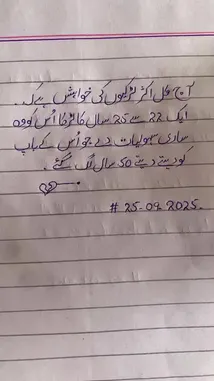 آج کل اکثر لڑکیوں کی خواہش ہے کہ
ایک 22 سے 25 سال کا لڑکا اُس کو وہ
ساری سہولیات دے جو اُس کے باپ
کو دیتے دیتے 50 سال لگ گئے۔
# 25-09-2025.